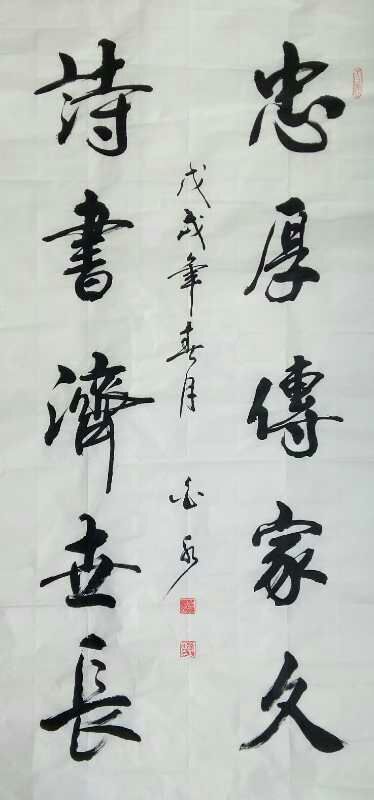 忠厚傳家久
詩書濟世長
戊戌年春月